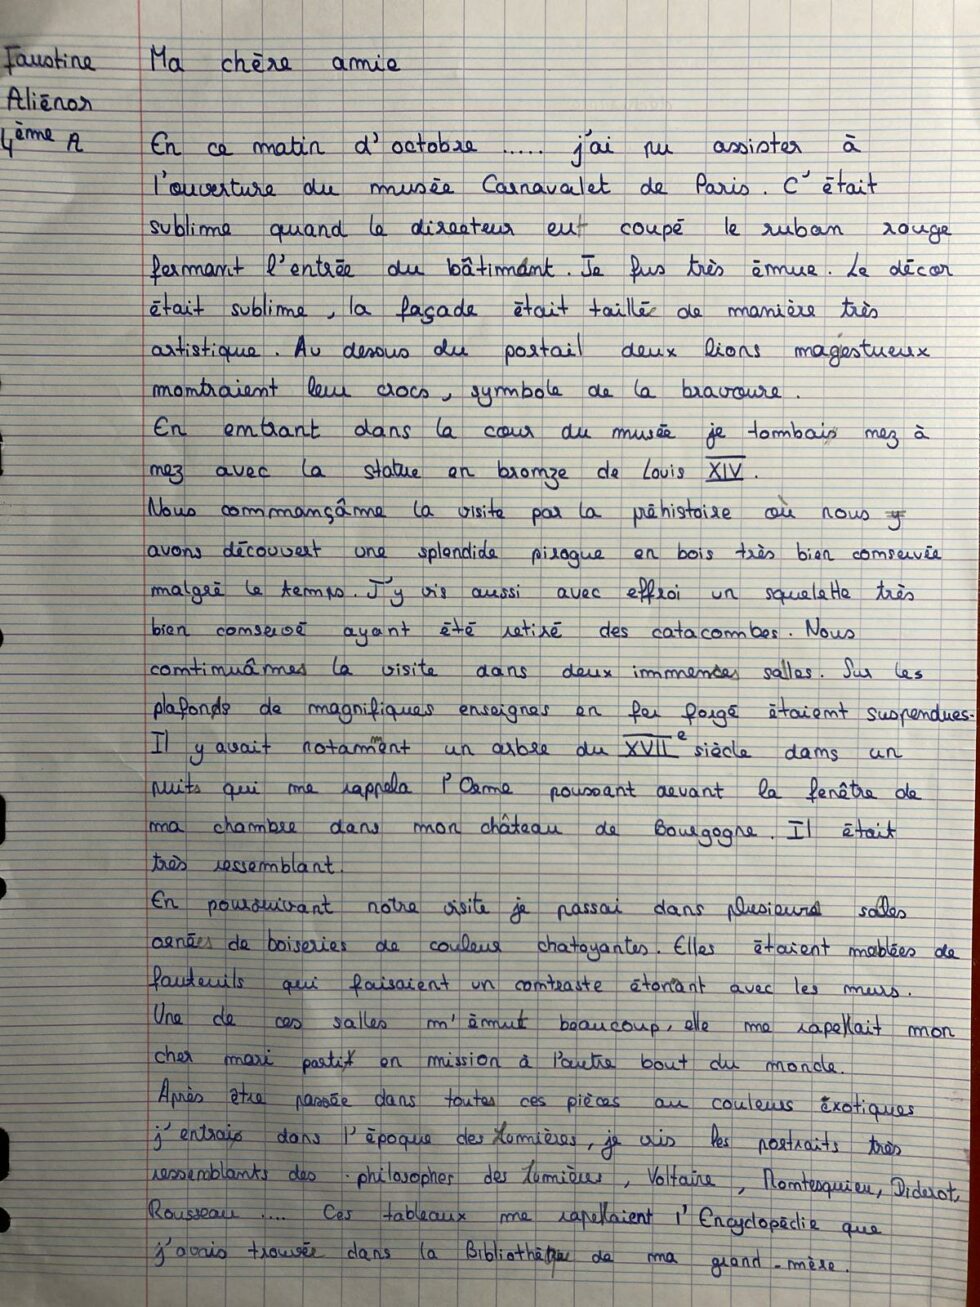 Faustine
Aliénor
4ème A
Ma chère amie
En ce matin d'octobre ..... j'ai pu assister à
l'ouverture du musée Carnavalet de Paris. C'était
sublime quand le directeur eut coupé le ruban rouge
fermant l'entrée du bâtiment. Je fus très émue. Le décor
était sublime, la façade était taillé de manière très
artistique. Au desous du portail deux lions magestueux
montraient leur crocs, symbole de la bravoure.
En entrant dans la cour du musée je tombais nez à
nez avec la statue en bronze de Louis XIV.
Nous commançâme la visite par la préhistoire où nous y
avons découvert une splendide pirogue en bois très bien conservée
malgré le temps. J'y vis aussi avec effroi un squelette très
bien conservé ayant été retiré des catacombes. Nous
continuâmes la visite dans deux immenses salles. Sur les
plafonds de magnifiques enseignes en fer forgé étaient suspendues.
Il y avait notamment un arbre du XVIIe siècle dans un
puits qui me rappela l'Orme poussant devant la fenêtre de
ma chambre dans mon château de Bourgogne. Il était
très ressemblant.
En poursuivant notre visite je passai dans plusieurs salles
ornées de boiseries de couleur chatoyantes. Elles étaient mablées de
fauteuils qui faisaient un contraste étonant avec les murs.
Une de ces salles m'émut beaucoup, elle me rapellait mon
cher mari partit en mission à l'autre bout du monde.
Après être passée dans toutes ces pièces au couleurs éxotiques
j'entrais dans l'époque des Lumières, je vis les portraits très
ressemblants des philosopher des Lumières, Voltaire, Montesquieu, Diderot,
Rousseau .... Ces tableaux me rapellaient l'Encyclopédie que
j'avais trouvée dans la Bibliothèque de ma grand-mère.